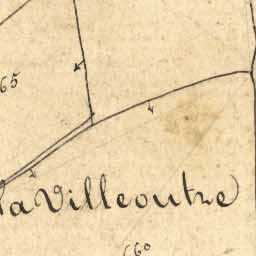 65
la Villeoutre
660